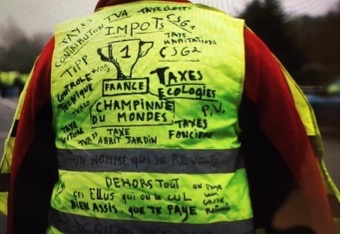 TVA TAXE
IMPOTS CSG
CONTRIBUTION
TAXE
HABITATION
CSG2
TIPP
1
CONTROLE
TECHNIQUE
FRANCE
TAXES
ECOLOGIES
CHAMPINNE
DU MONDES
P.V.
TAXES
FONCIERE
TAXE
TAXE
ABRIT JARDIN
UN HOMME qui SE REVOLTE
DEHORS TOUT
CES ELLUS qui on LE CUL
BIEN ASSIS QUE TE PAYE
ON PAYE
UN
GROSSE
RETRAITE